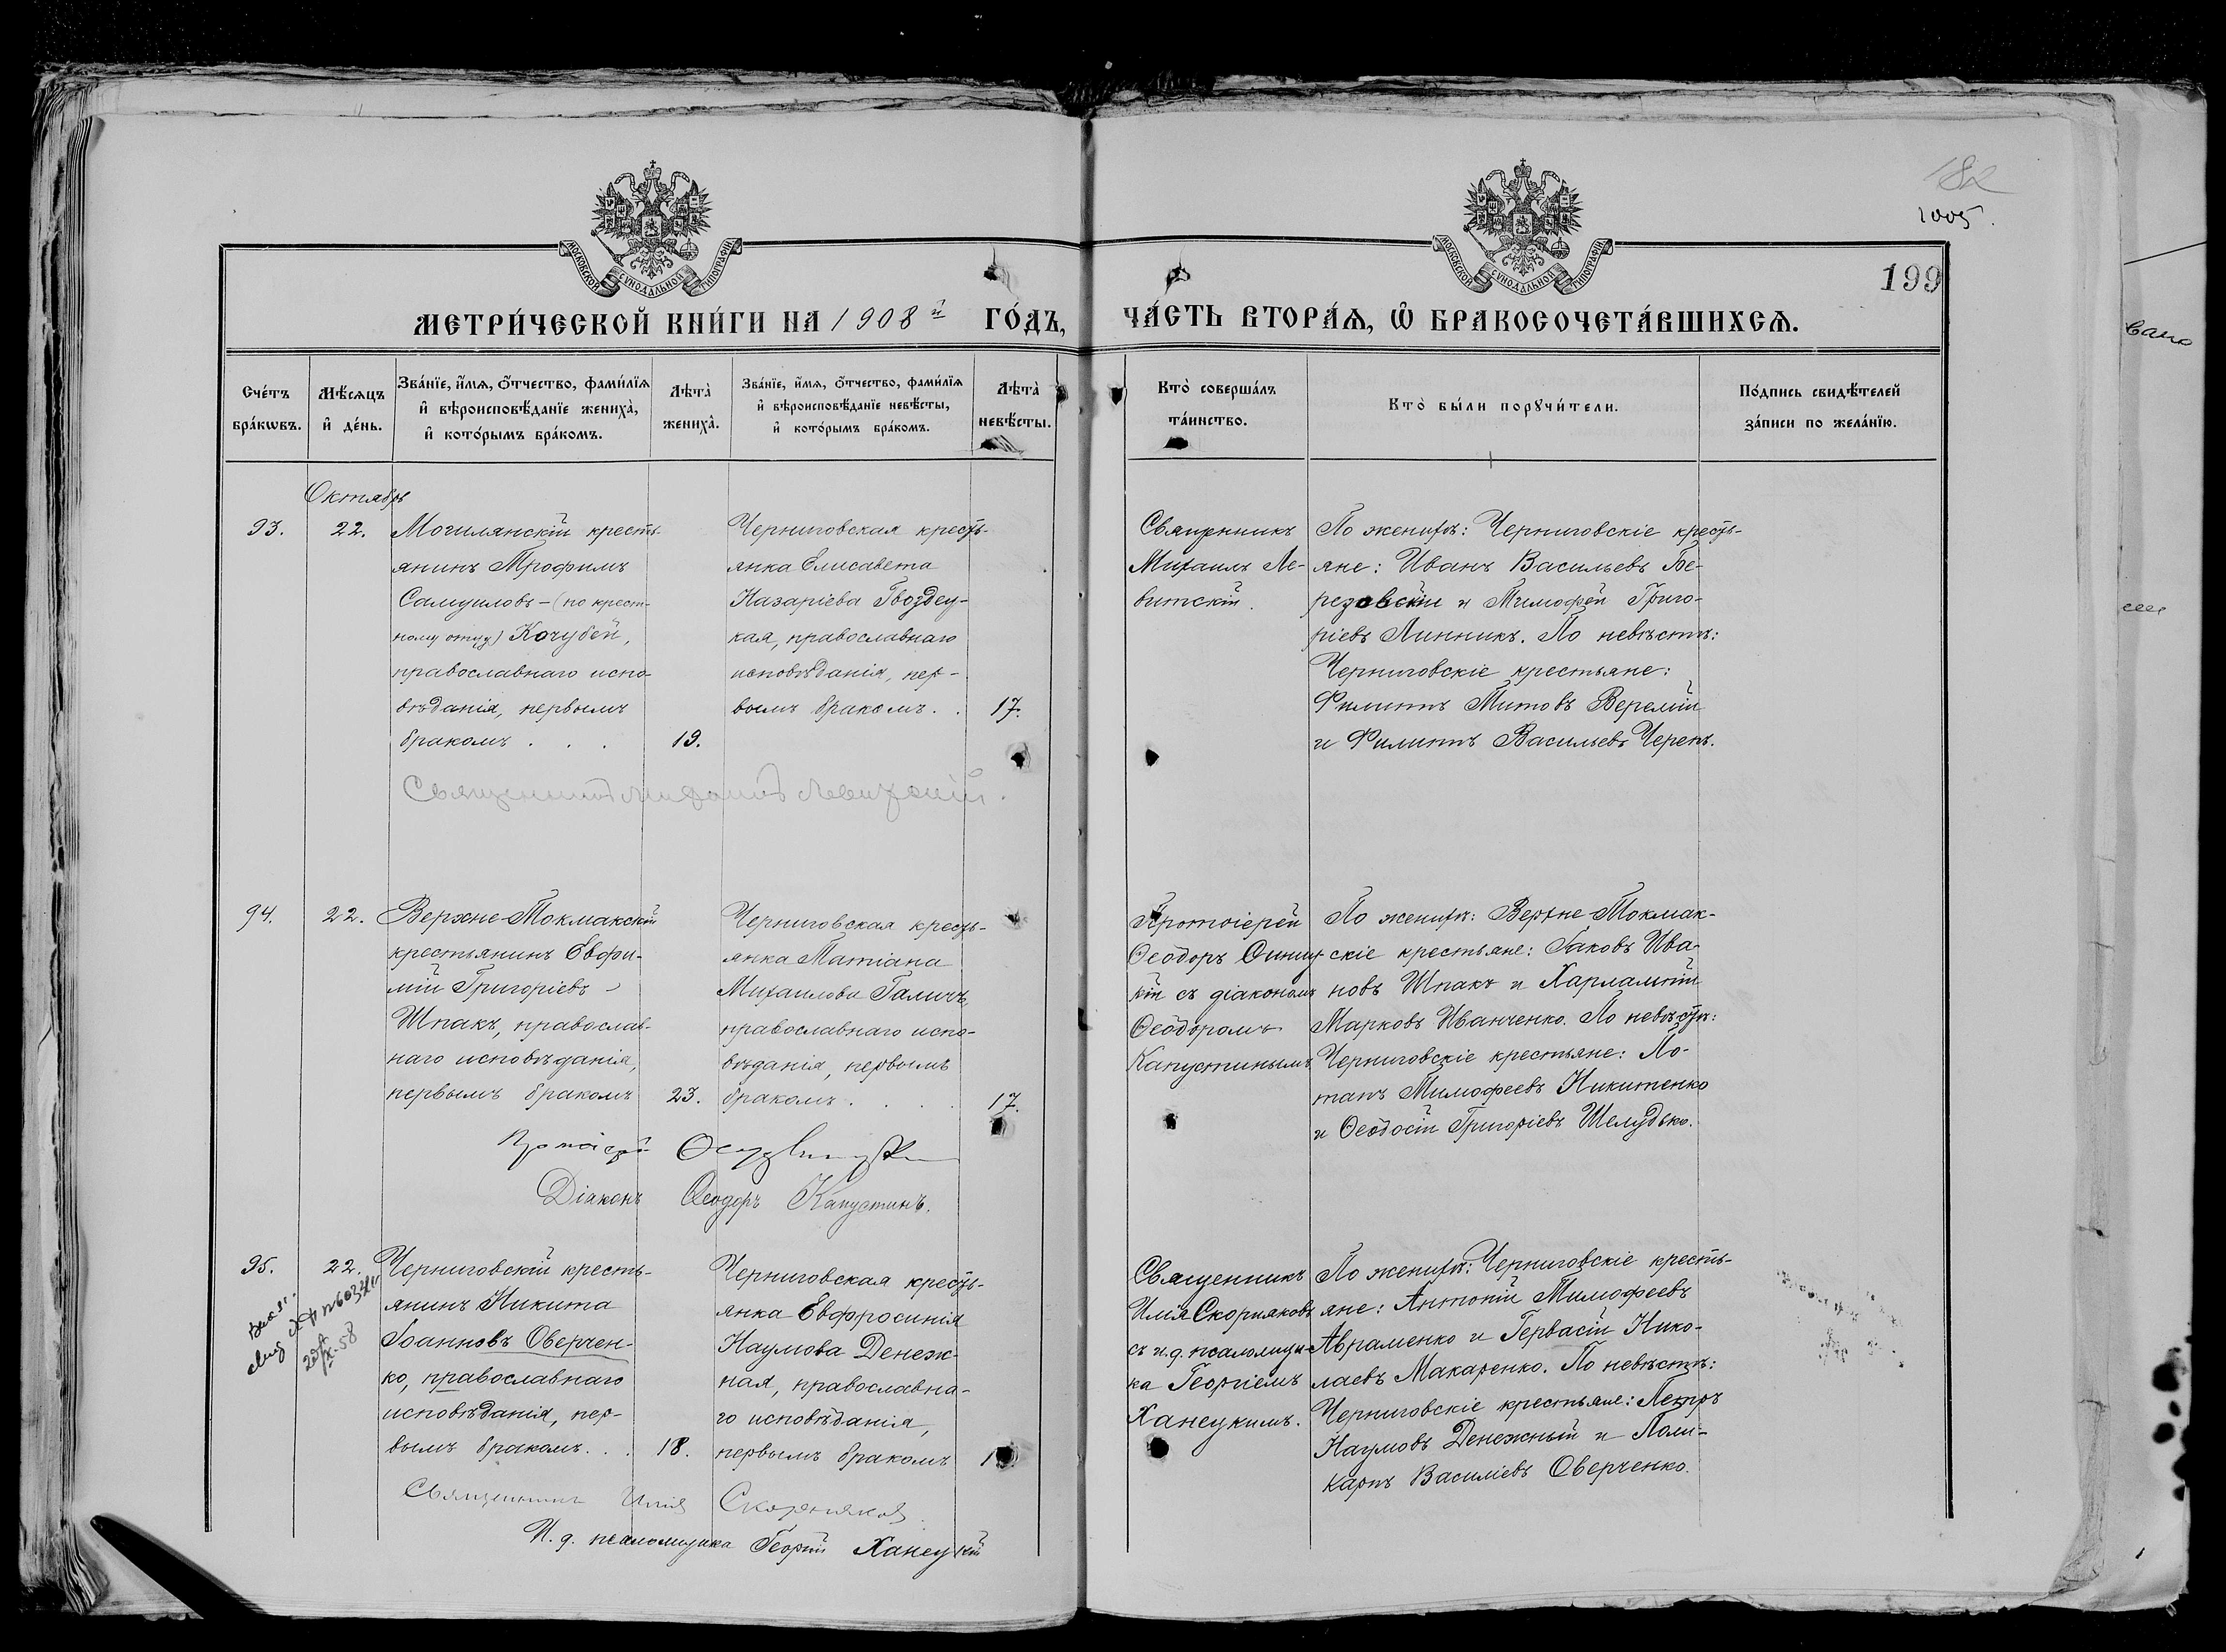 182
1005.
199
МОСКОВСКОЙ СУНОДАЛЬНОЙ ТИПОГРАФІИ
МОСКОВСКОЙ СУНОДАЛЬНОЙ ТИПОГРАФІИ
МЕТРИ́ЧЕСКОЙ КНИ́ГИ НА 1908й ГО́ДЪ,
ЧА́СТЬ ВТОРА́Ѧ, Ѡ БРАКОСОЧЕТА́ВШИХСѦ.
Сче́тъ
бра́кѡвъ.
Мѣ́сѧцъ
и҆ де́нь.
Зва́нїе, и҆́мѧ, ѻ҆́тчество, фами́лїѧ
и҆ вѣроисповѣ́данїе жениха̀,
и҆ кото́рымъ бра́комъ.
Лѣ́та̀
жениха̀.
Зва́нїе, и҆́мѧ, ѻ҆́тчество, фами́лїѧ
и҆ вѣроисповѣ́данїе невѣ́сты,
и҆ кото́рымъ бра́комъ.
Лѣ́та̀
невѣ́сты.
Кто̀ соверша́лъ
та́инство.
Кто̀ бы́ли порꙋчи́тели.
По́дпись свидѣ́телей
за́писи по жела́нїю.
Октябрь
93.
22.
Могилянскій кресть-
янинъ Трофимъ
Самуиловъ – (по крест-
ному отцу) Кочубей,
православнаго испо-
вѣданія, первымъ
бракомъ . . .
19.
Черниговская кресть-
янка Елисавета
Назаріева Гвоздец-
кая, православнаго
исповѣданія, пер-
вымъ бракомъ. .
17.
Священникъ
Михаилъ Ле-
витскій.
По женихѣ: Черниговскіе кресть-
яне: Иванъ Васильевъ Бе-
резовскій и Тимофей Григо-
ріевъ Линникъ. По невѣстѣ:
Черниговскіе крестьяне:
Филиппъ Титовъ Веремій
и Филиппъ Васильевъ Черепъ.
Священникъ Михаилъ Левитскій.
94.
22.
Верхне-Токмакскій
крестьянинъ Евфи-
мій Григоріевъ
Шпакъ, православ-
наго исповѣданія,
первымъ бракомъ
23.
Черниговская кресть-
янка Татіана
Михаилова Галичъ,
православнаго испо-
вѣданія, первымъ
бракомъ. . . .
17.
Протоіерей
Ѳеодоръ Синиц-
кій съ діакономъ
Ѳеодоромъ
Капустинымъ
По женихѣ: Верхне-Токмак-
скіе крестьяне: Іаковъ Ива-
новъ Шпакъ и Харлампій
Марковъ Иванченко. По невѣстѣ:
Черниговскіе крестьяне: По-
тапъ Тимофеевъ Никитенко
и Ѳеодосій Григоріевъ Шелудько.
Протоіерей
Діаконъ Ѳеодоръ Капустинъ.
95.
22.
Черниговскій кресть-
янинъ Никита
Іоанновъ Оверчен-
ко, православнаго
исповѣданія, пер-
вымъ бракомъ. . .
18.
Черниговская кресть-
янка Евфросинія
Наумова Денеж-
ная, православна-
го исповѣданія,
первымъ бракомъ
Священникъ
Илія Скорняковъ
съ и.д. псаломщи-
ка Георгіемъ
Ханецкимъ.
По женихѣ: Черниговскіе кресть-
яне: Антоній Тимофеевъ
Авраменко и Гервасій Нико-
лаевъ Макаренко. По невѣстѣ:
Черниговскіе крестьяне: Петръ
Наумовъ Денежный и Поли-
карпъ Василіевъ Оверченко.
Священникъ Илія Скорняковъ
И. д. псаломщика Георгій Ханецкій